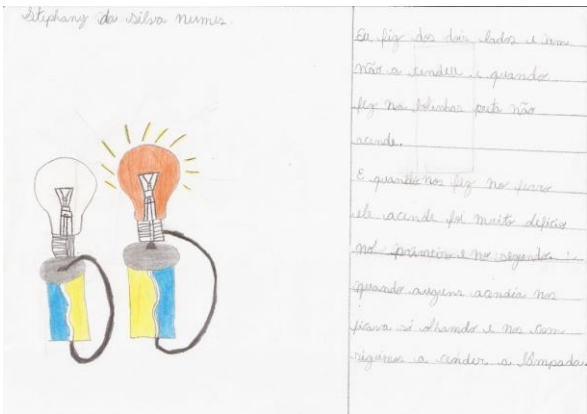 Stephany da silva nunes.
Eu fiz dos dois lados e um
não a cendeu e quando
fez na bolinhas preta não
acende.
E quando nos fez no ferro
ele acende foi muito dificio
no primeiro e no segundo.
quando auguns acendia nos
ficava só olhando e nos com
siguimos a cender a lâmpada.